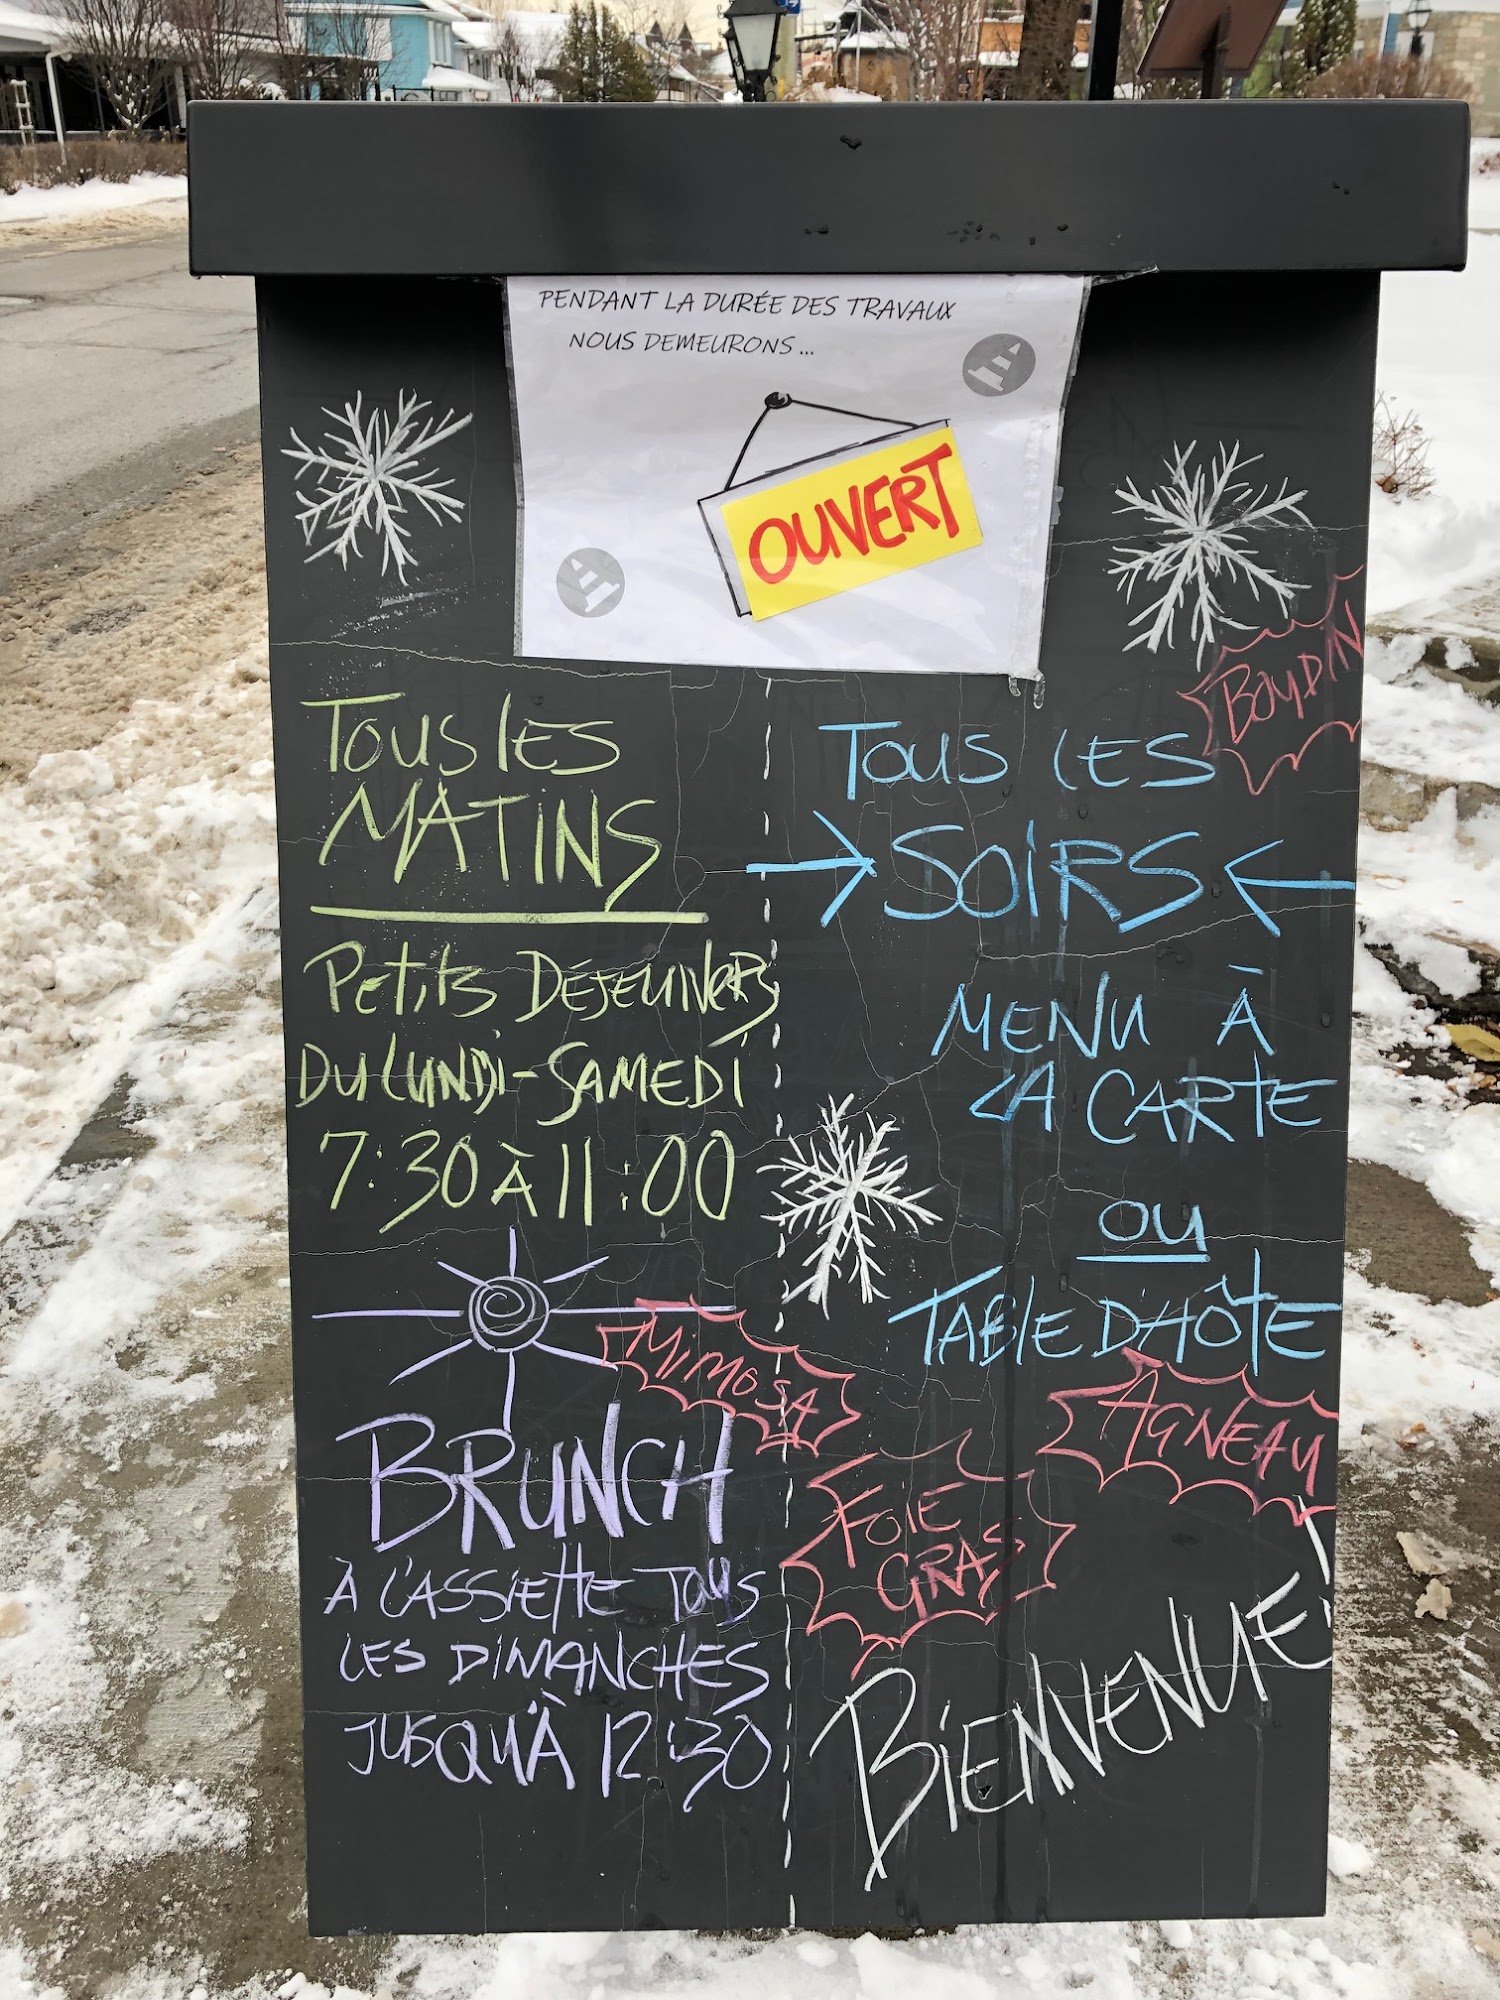 PENDANT LA DURÉE DES TRAVAUX
NOUS DEMEURONS...
OUVERT
TOUS LES
MATINS
PETITS DÉJEUNERS
DU LUNDI-SAMEDI
7:30 À 11:00
BRUNCH
À L'ASSIETTE TOUS
LES DIMANCHES
JUSQU'À 12:30
MIMOSA
BOUDIN
TOUS LES
SOIRS
MENU À
LA CARTE
OU
TABLE D'HÔTE
AGNEAU
FOIE
GRAS
BIENVENUE!